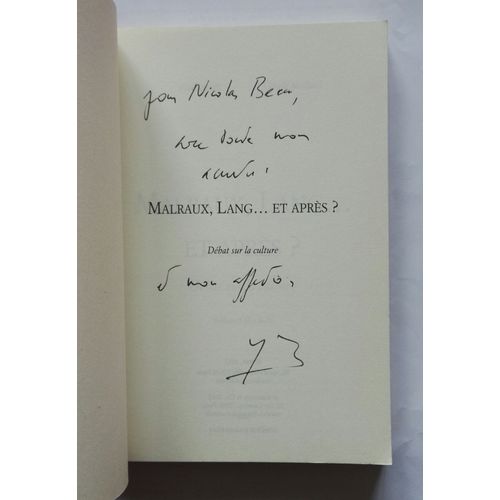 pour Nicolas Beau,
avec toute mon
amitié
MALRAUX, LANG… ET APRÈS ?
Débat sur la culture
et mon affection,